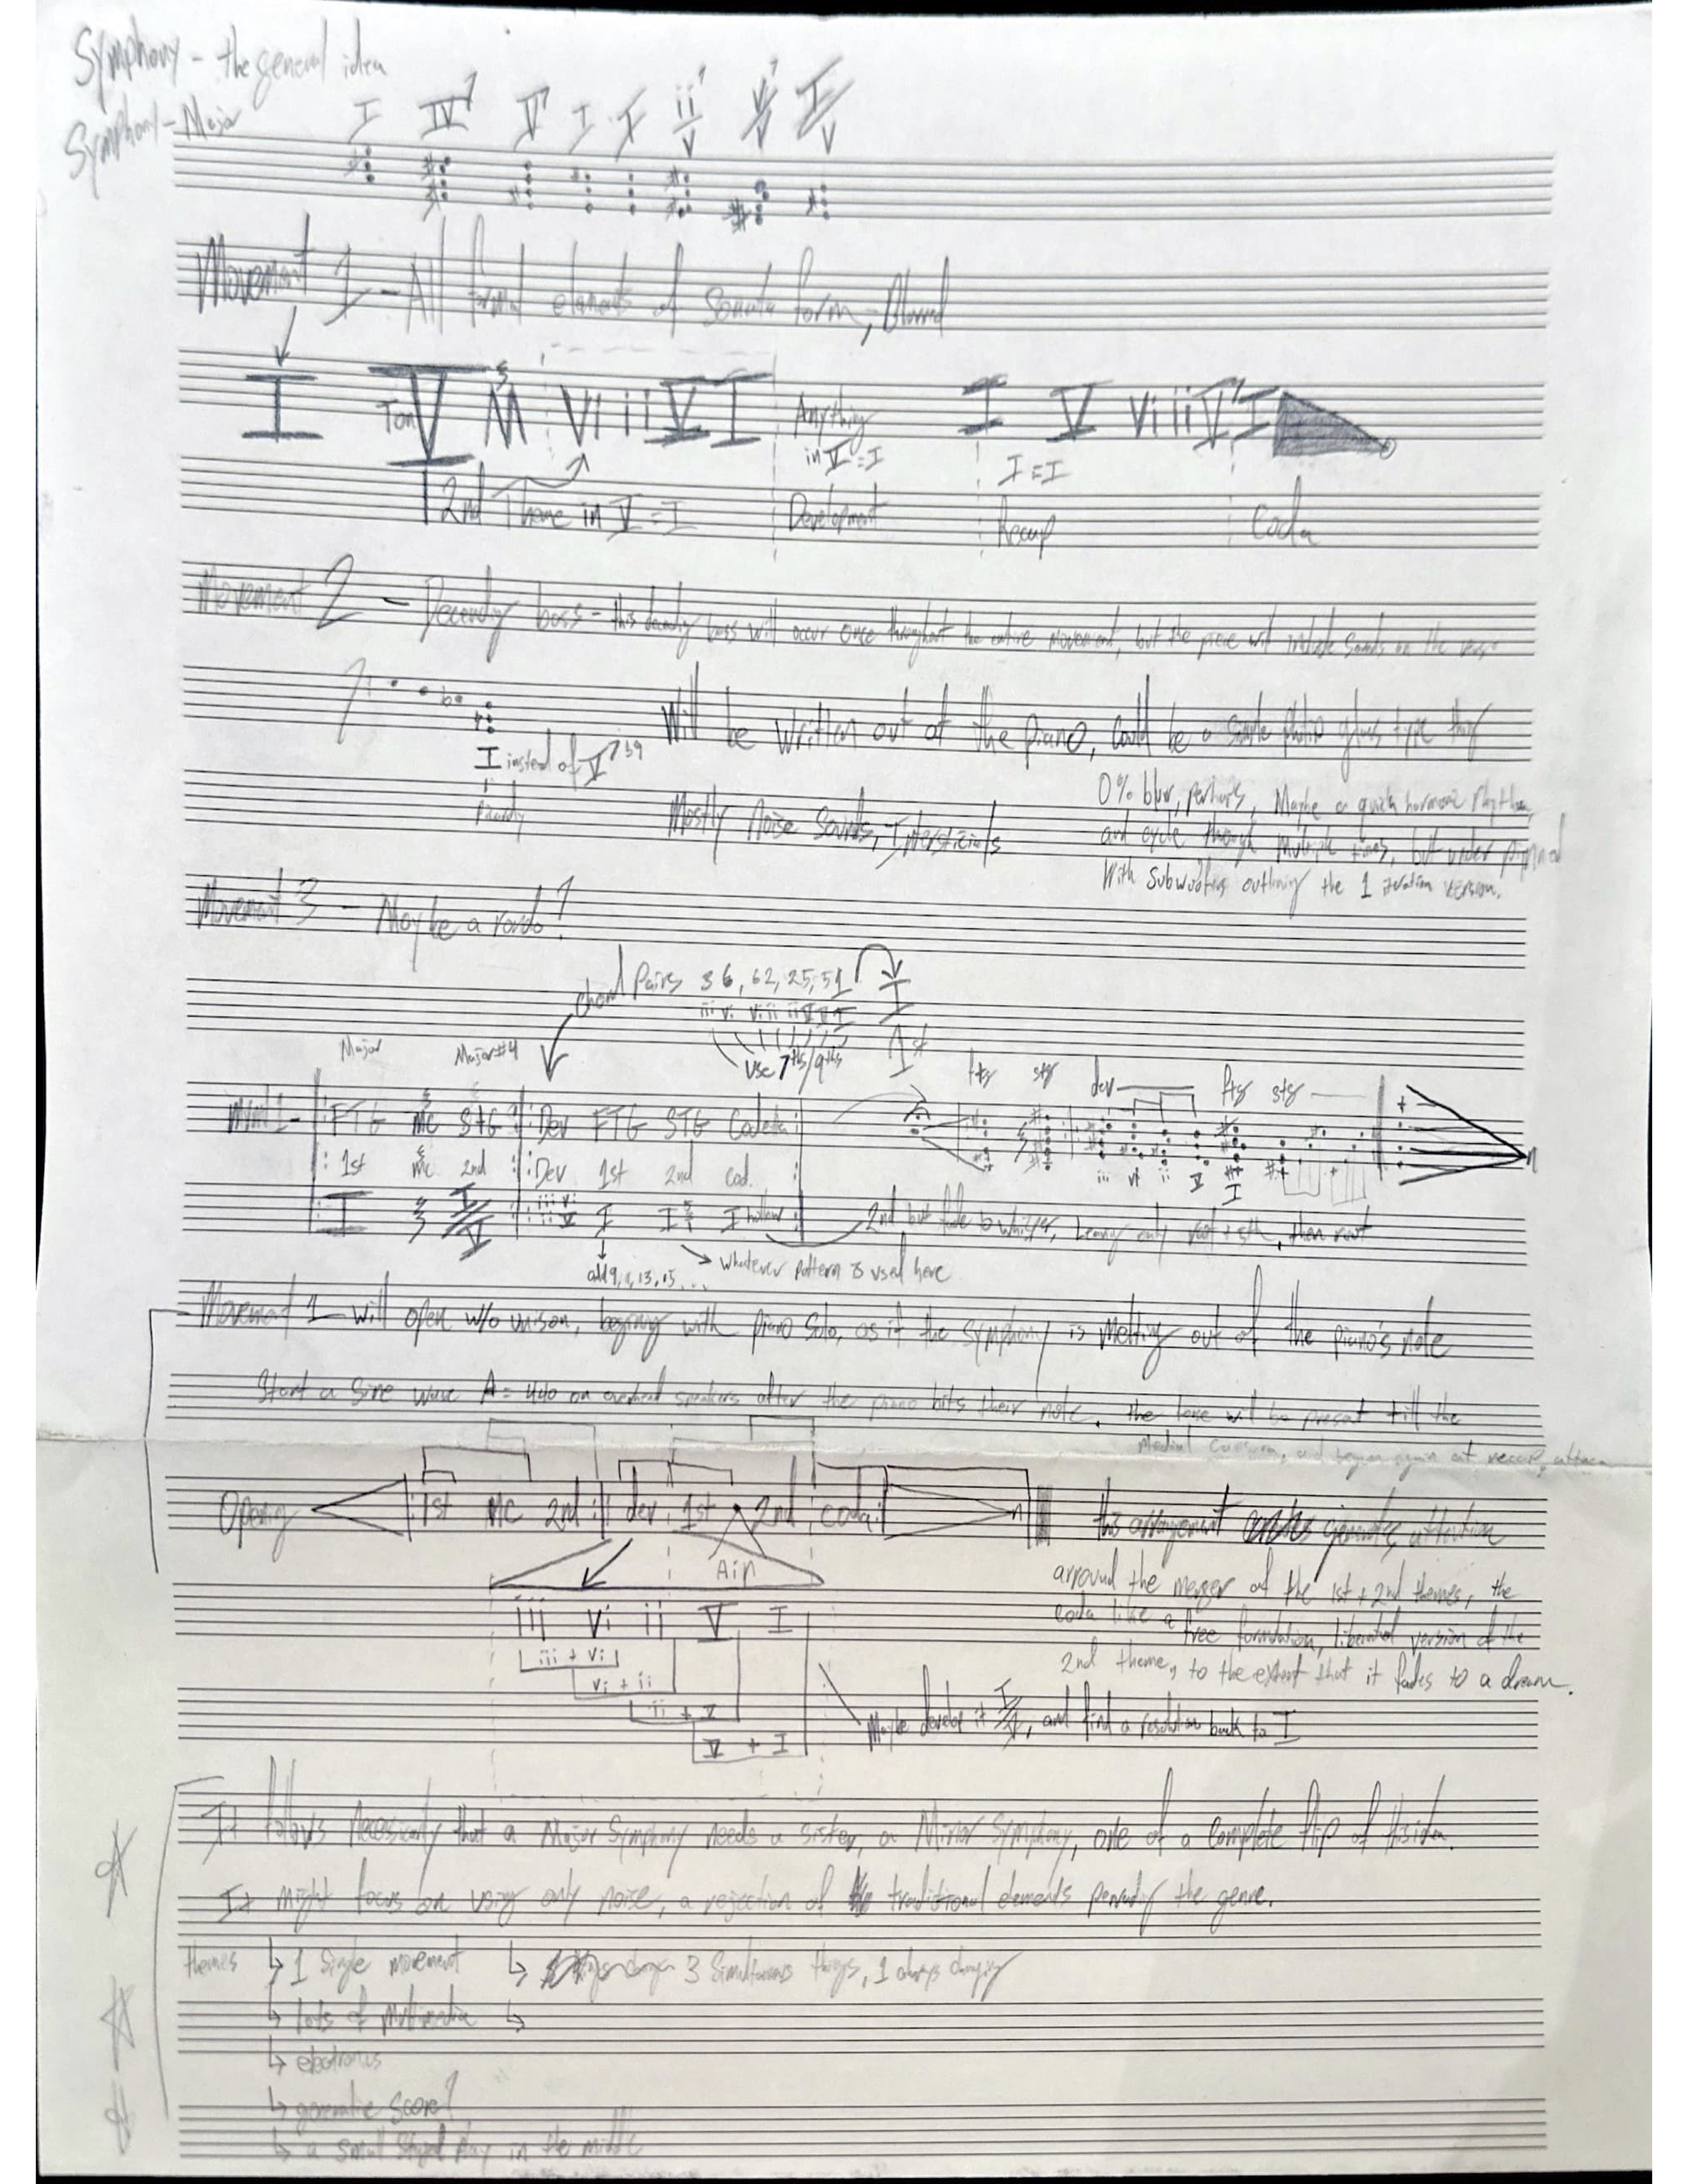 Symphony - the general idea
Symphony - Major
I IV7 V7 I I ii7/V V7/V I/V
Movement 1 - All formal elements of Sonata form, Blurred
I V M vi ii V I Anything I V vi ii V7 I
in V = I I = I
2nd Theme in V = I Development Recap Coda
Movement 2 - Decending bass - this decending bass will occur once throughout the entire movement, but the piece will include sounds on the
Will be written out at the piano, could be a simple philip glass type thing
I instead of V7b9
Mostly Noise Sounds, Intersticials
0% blur, perhaps, Maybe a quick harmonic rhythm,
and cycle through multiple times, but under pinned
with subwoofers outlining the 1 iteration version.
Movement 3 - Maybe a rondo?
chord Pairs 36, 62, 25, 51 I
iii vi vi ii ii V V I
use 7ths/9ths 1st
Major Major#4
fts sts dev fts sts
mvmt 1- FTG MC STG Dev FTG STG Codetta
1st MC 2nd Dev 1st 2nd cod.
iii vi ii V I
I I/V iii vi ii V I I I hollow 2nd but fade to whisper, leaving only root + 5th, then root
add 9, 11, 13, 15 ... whatever pattern is used here
Movement 1 - will open w/o unison, beginning with piano solo, as if the symphony is melting out of the piano's note
Start a sine wave A = 440 on overhead speakers after the piano hits their note. the tone will be present till the
medial caesura, and began again at recap, attacca
Opening 1st MC 2nd dev 1st 2nd coda n this arrangement generates attention
Air
arround the merger of the 1st + 2nd themes, the
coda like a free formation, liberated version of the
2nd theme, to the extent that it fades to a dream.
iii vi ii V I
iii + vi
vi + ii
ii + V
V + I
Maybe develop it I/V, and find a resolution back to I
It follows necessarily that a Major Symphony needs a sister, a Minor Symphony, one of a complete flip of this idea.
It might focus on using only noise, a rejection of traditional elements the genre.
themes ↳ 1 Single movement ↳ 3 Simultaneous things, 1 always changing
↳ lots of multimedia ↳
↳ electronics
↳ generative score?
↳ a small staged play in the middle